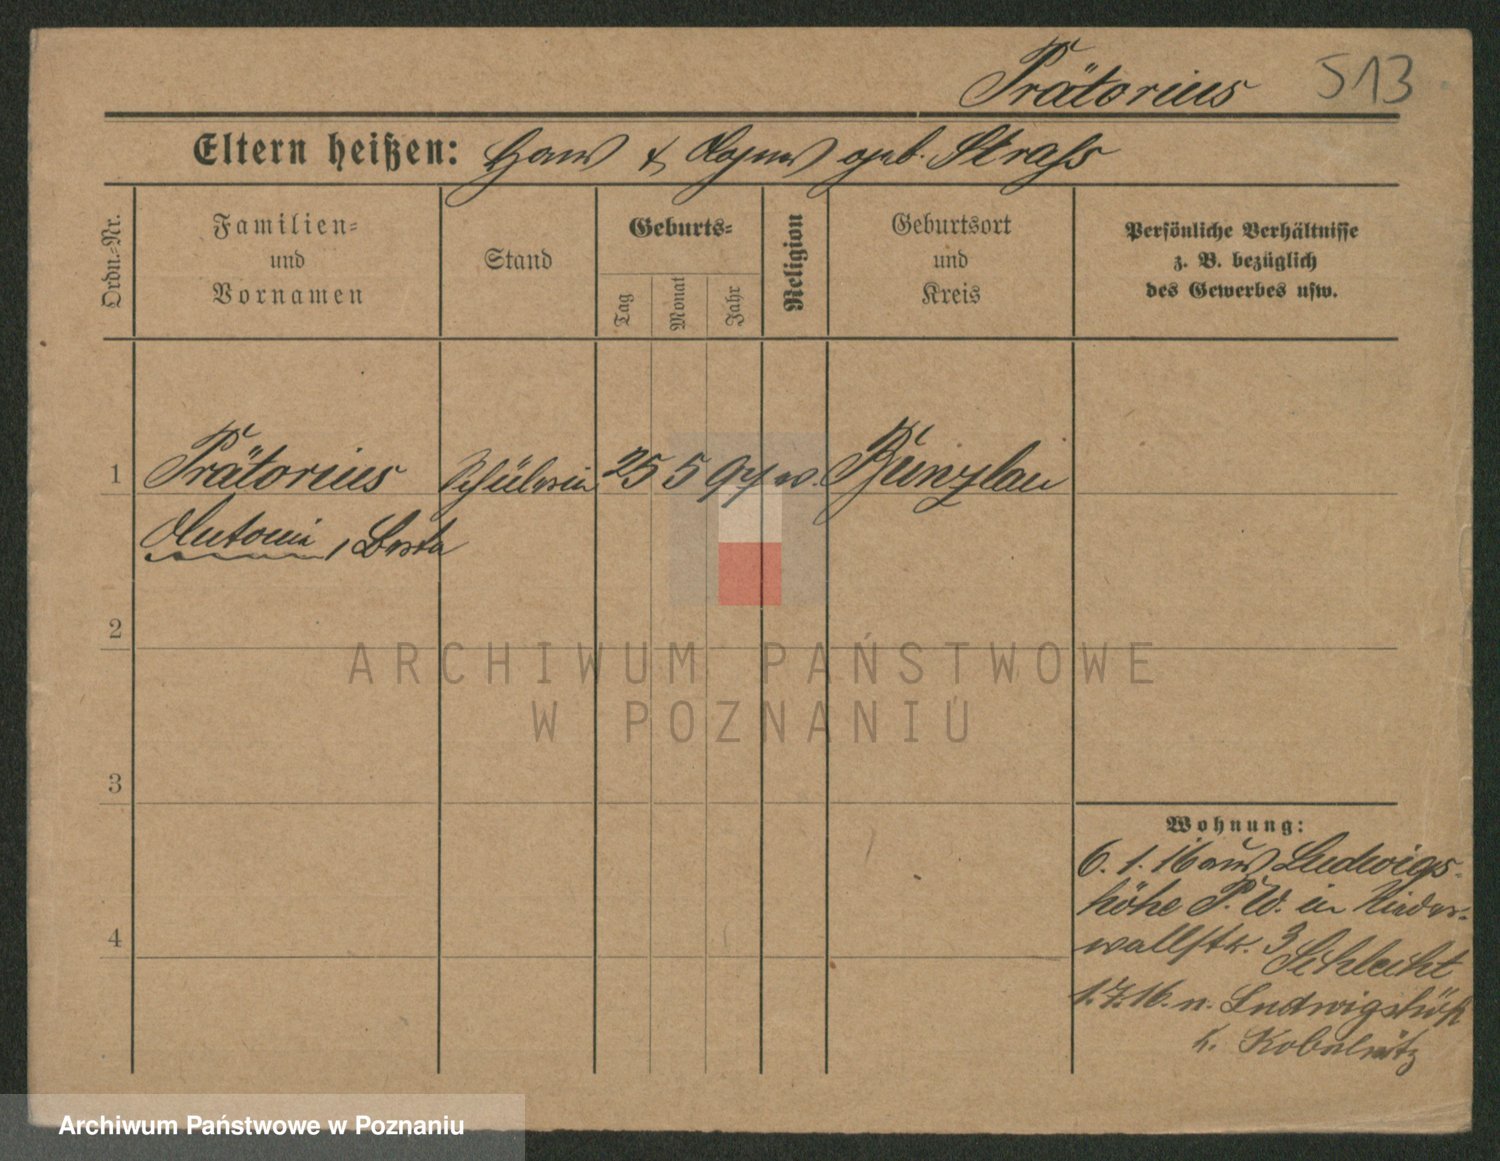 Prätorius 513
Eltern heißen: Hans & Agnes geb. Strass
Ordn.-Nr.
Familien-
und
Vornamen
Stand
Geburts-
Tag
Monat
Jahr
Religion
Geburtsort
und
Kreis
Persönliche Verhältnisse
z. B. bezüglich
des Gewerbes usw.
1 Prätorius Schülerin 25 5 Bunzlau
Antonie, Berta
2
3
4
Wohnung:
6. 1. 16 aus Ludwigs-
höhe P. W. in Nieder-
wallstr. 3
Schlecht
1.7.16. n. Ludwigshöh
ARCHIWUM PAŃSTWOWE
W POZNANIU
Archiwum Państwowe w Poznaniu